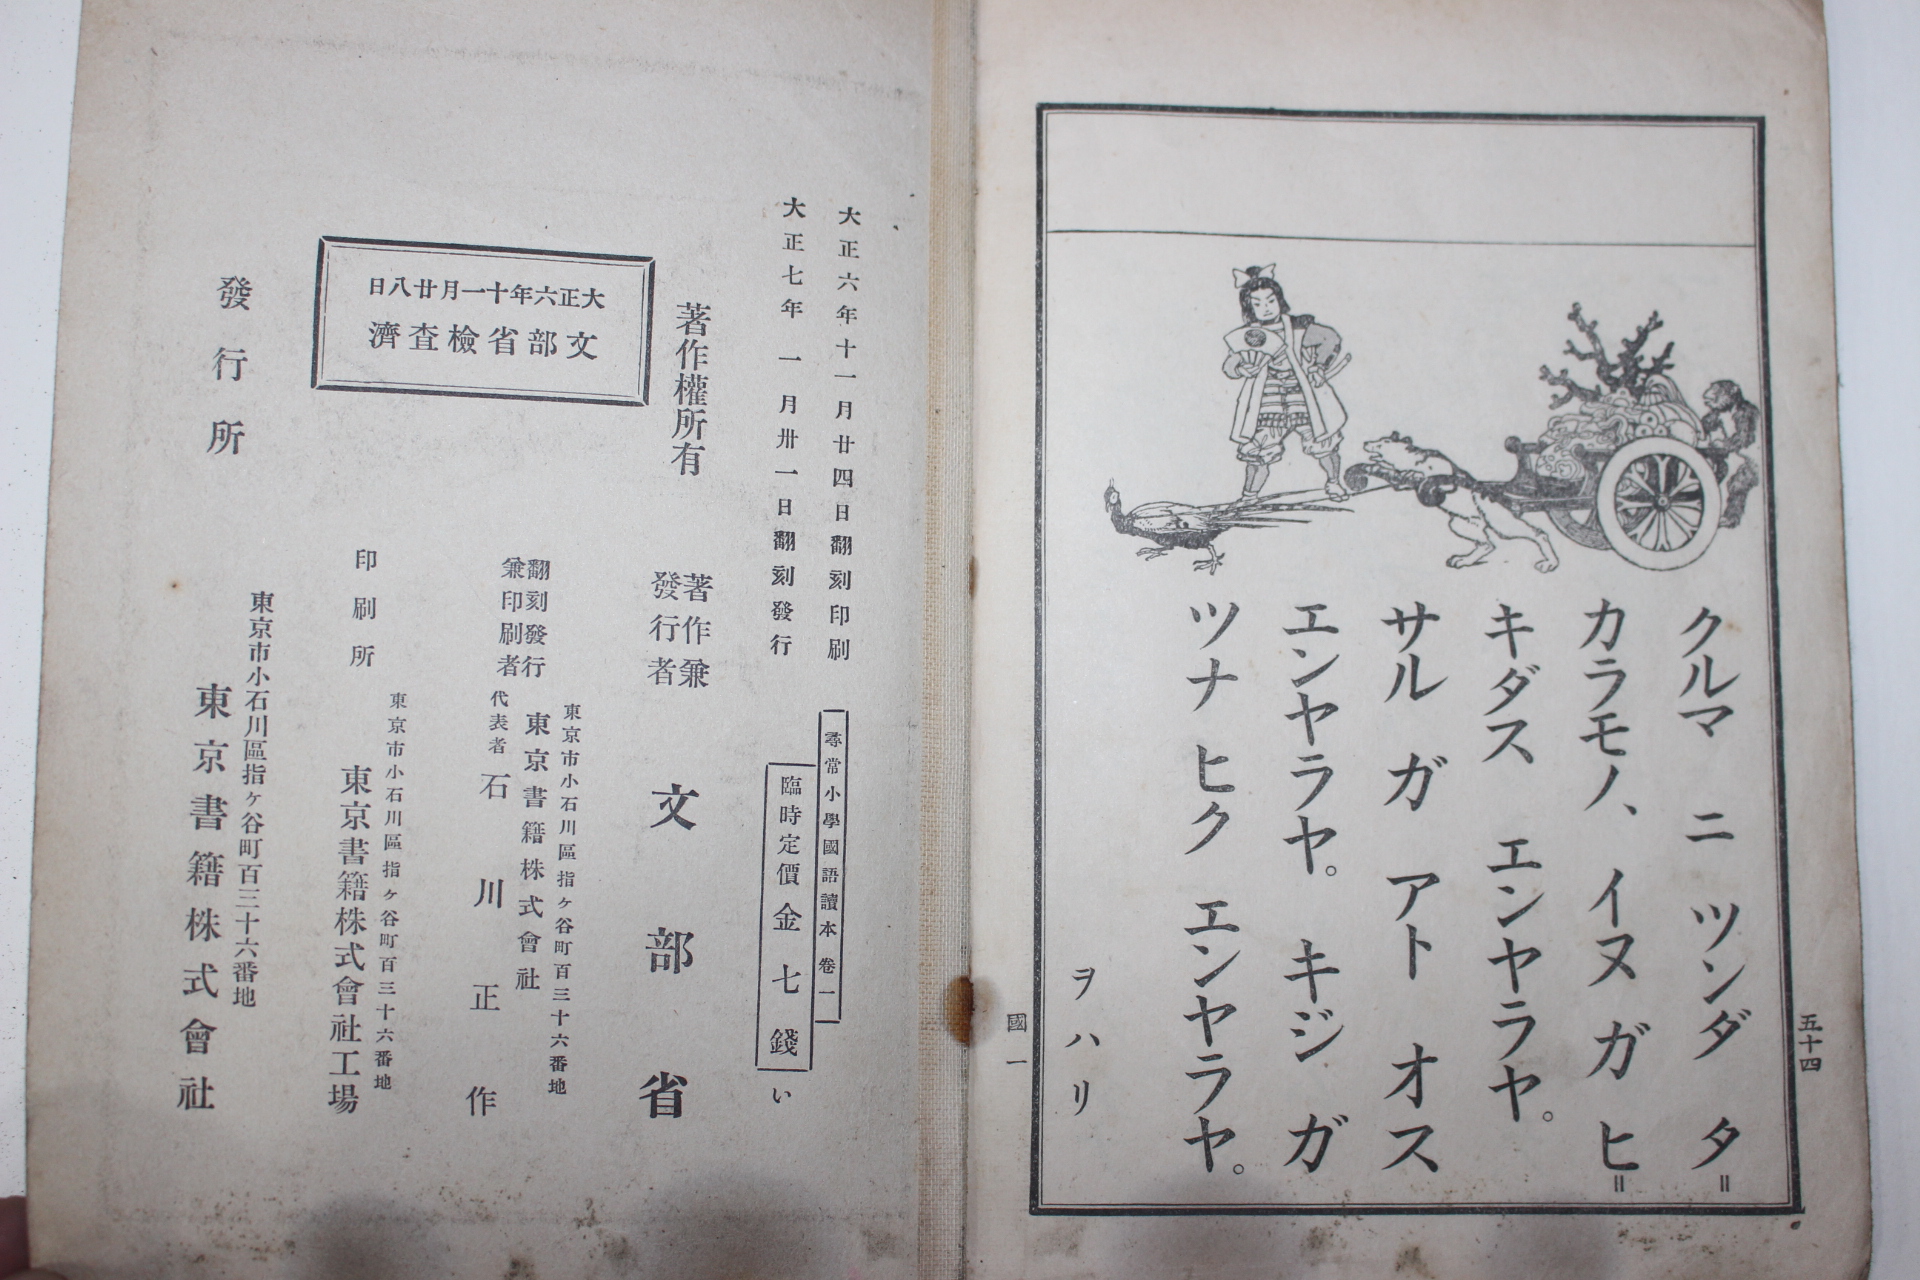 五十四
クルマ ニ ツンダ タ＝
カラモノ、イヌ ガ ヒ＝
キダス エンヤラヤ。
サル ガ アト オス
エンヤラヤ。 キジ ガ
ツナ ヒク エンヤラヤ。
ヲハリ
國一
大正六年十一月廿四日翻刻印刷
大正七年一月卅一日翻刻發行
尋常小學國語讀本 卷一
臨時定價金七錢
い
著作權所有
著作兼
發行者
文部省
大正六年十一月廿八日
文部省檢査濟
翻刻發行
兼印刷者
東京市小石川區指ヶ谷町百三十六番地
東京書籍株式會社
代表者 石川正作
印刷所
東京市小石川區指ヶ谷町百三十六番地
東京書籍株式會社工場
發行所
東京市小石川區指ヶ谷町百三十六番地
東京書籍株式會社